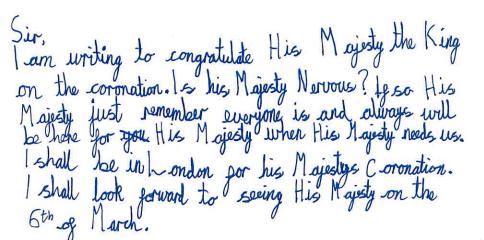 Sir,
I am writing to congratulate His Majesty the King
on the coronation. Is his Majesty Nervous? If so His
Majesty just remember everyone is and always will
be here for you His Majesty when His Majesty needs us.
I shall be in London for his Majestys Coronation.
I shall look forward to seeing His Majesty on the
6th of March.